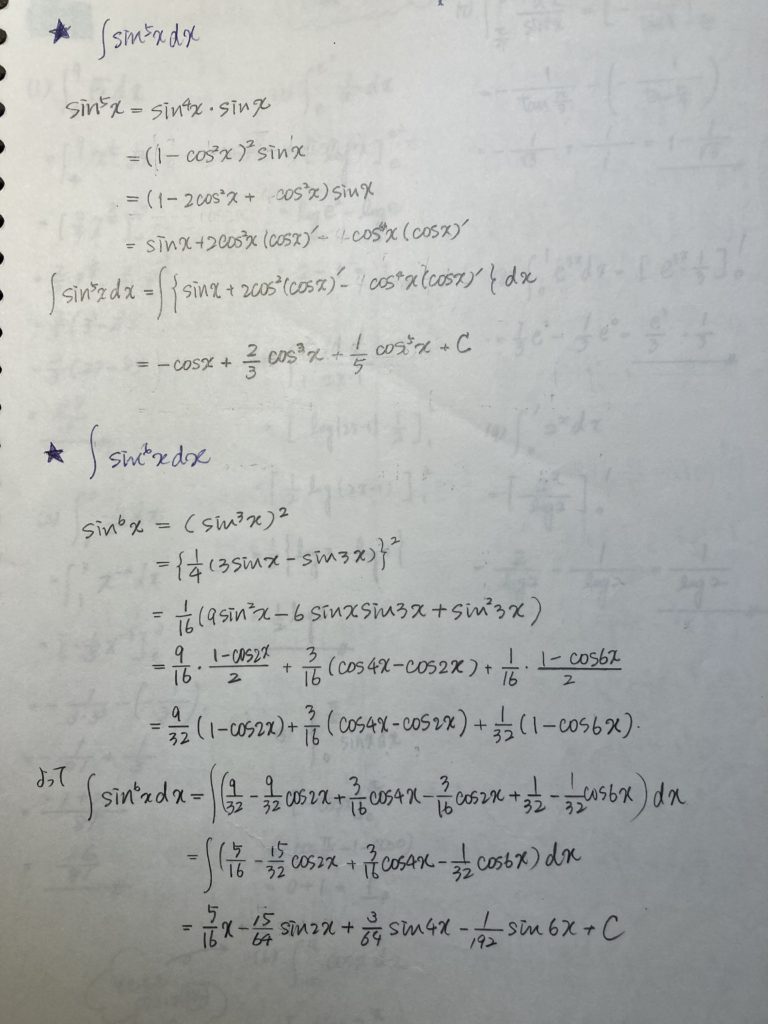 ★ ∫sin⁵xdx
sin⁵x = sin⁴x・sinx
= (1 - cos²x)² sinx
= (1 - 2cos²x + cos²x) sinx
= sinx + 2cos²x (cosx)′ - cos⁴x (cosx)′
∫sin⁵xdx = ∫{sinx + 2cos²(cosx)′ - cos⁴x (cosx)′} dx
= -cosx + 2/3 cos³x + 1/5 cos⁵x + C
★ ∫sin⁶xdx
sin⁶x = (sin³x)²
= {1/4 (3sinx - sin3x)}²
= 1/16 (9sin²x - 6 sinx sin3x + sin²3x)
= 9/16 ・ 1-cos2x/2 + 3/16 (cos4x - cos2x) + 1/16 ・ 1-cos6x/2
= 9/32 (1-cos2x) + 3/16 (cos4x - cos2x) + 1/32 (1-cos6x).
よって ∫sin⁶xdx = ∫(9/32 - 9/32 cos2x + 3/16 cos4x - 3/16 cos2x + 1/32 - 1/32 cos6x) dx
= ∫(5/16 - 15/32 cos2x + 3/16 cos4x - 1/32 cos6x) dx
= 5/16 x - 15/64 sin2x + 3/64 sin4x - 1/192 sin6x + C